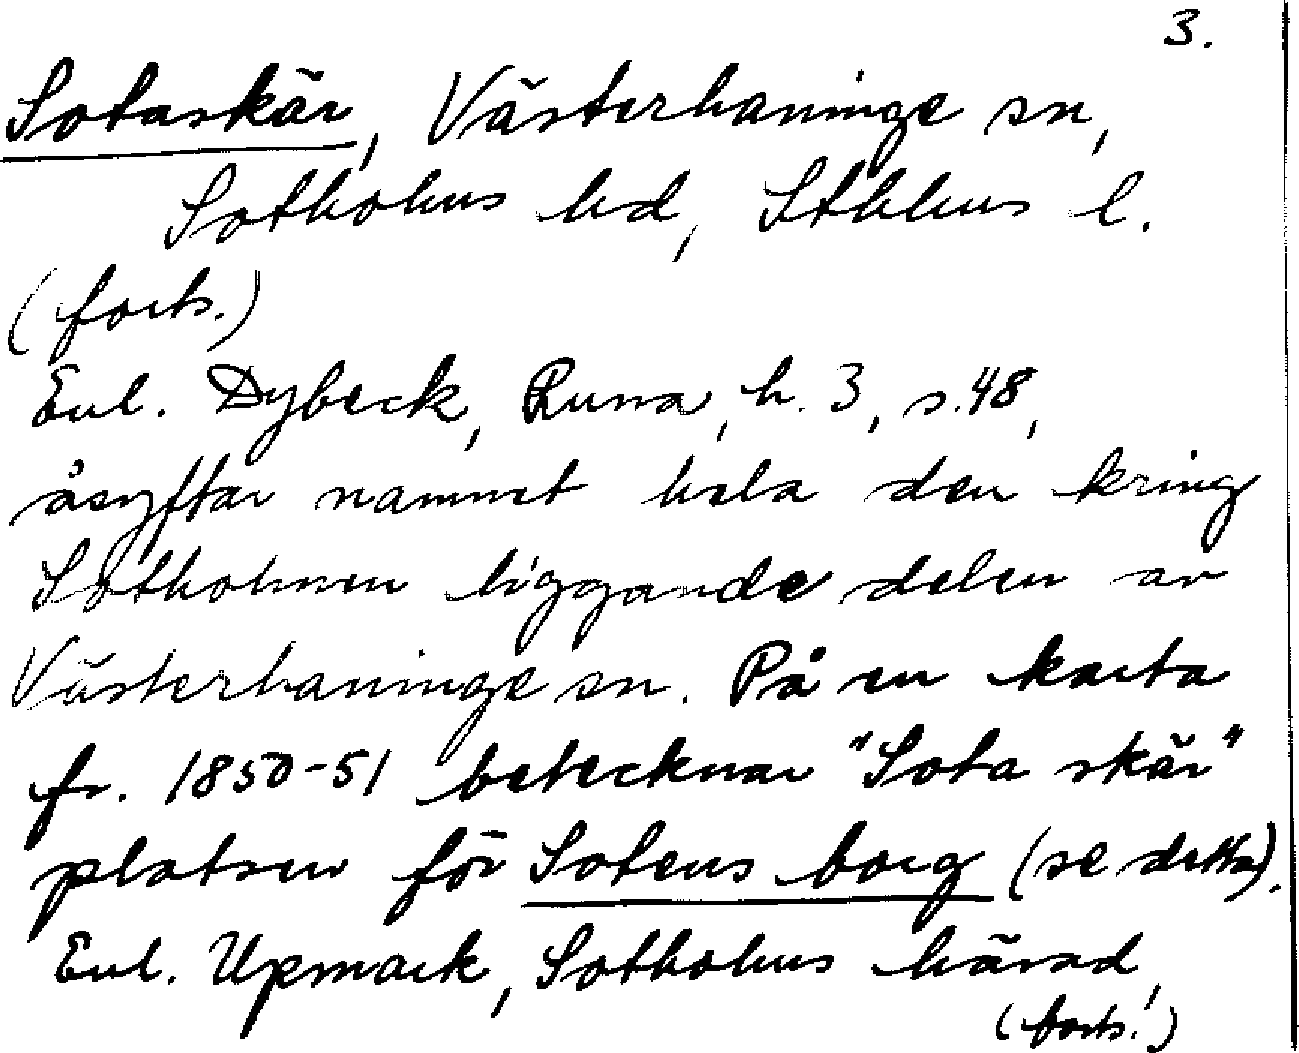 3.
Sotaskär, Västerhaninge sn,
Sotholms hd, Sthlms l.
(forts.)
Enl. Dybeck, Runa, h. 3, s. 48,
åsyftar namnet hela den kring
Sotholmen liggande delen av
Västerhaninge sn. På en karta
fr. 1850-51 betecknar "Sota skär"
platsen för Sotens borg (se detta).
Enl. Upmark, Sotholms härad,
(forts.!)